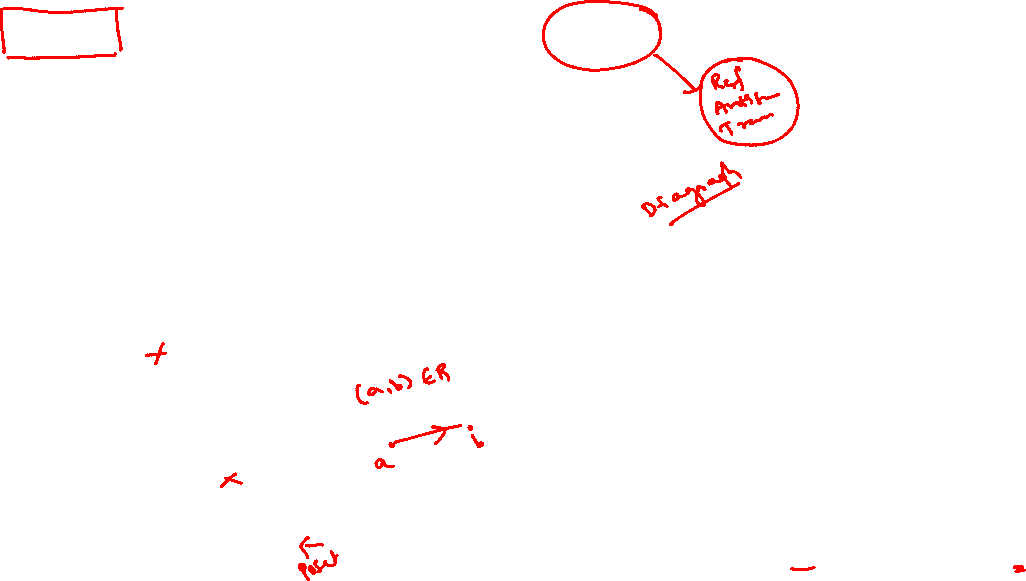 Ref
Antisy
Tran
Diagraph
(a,b) ∈ R
a
b
Poset